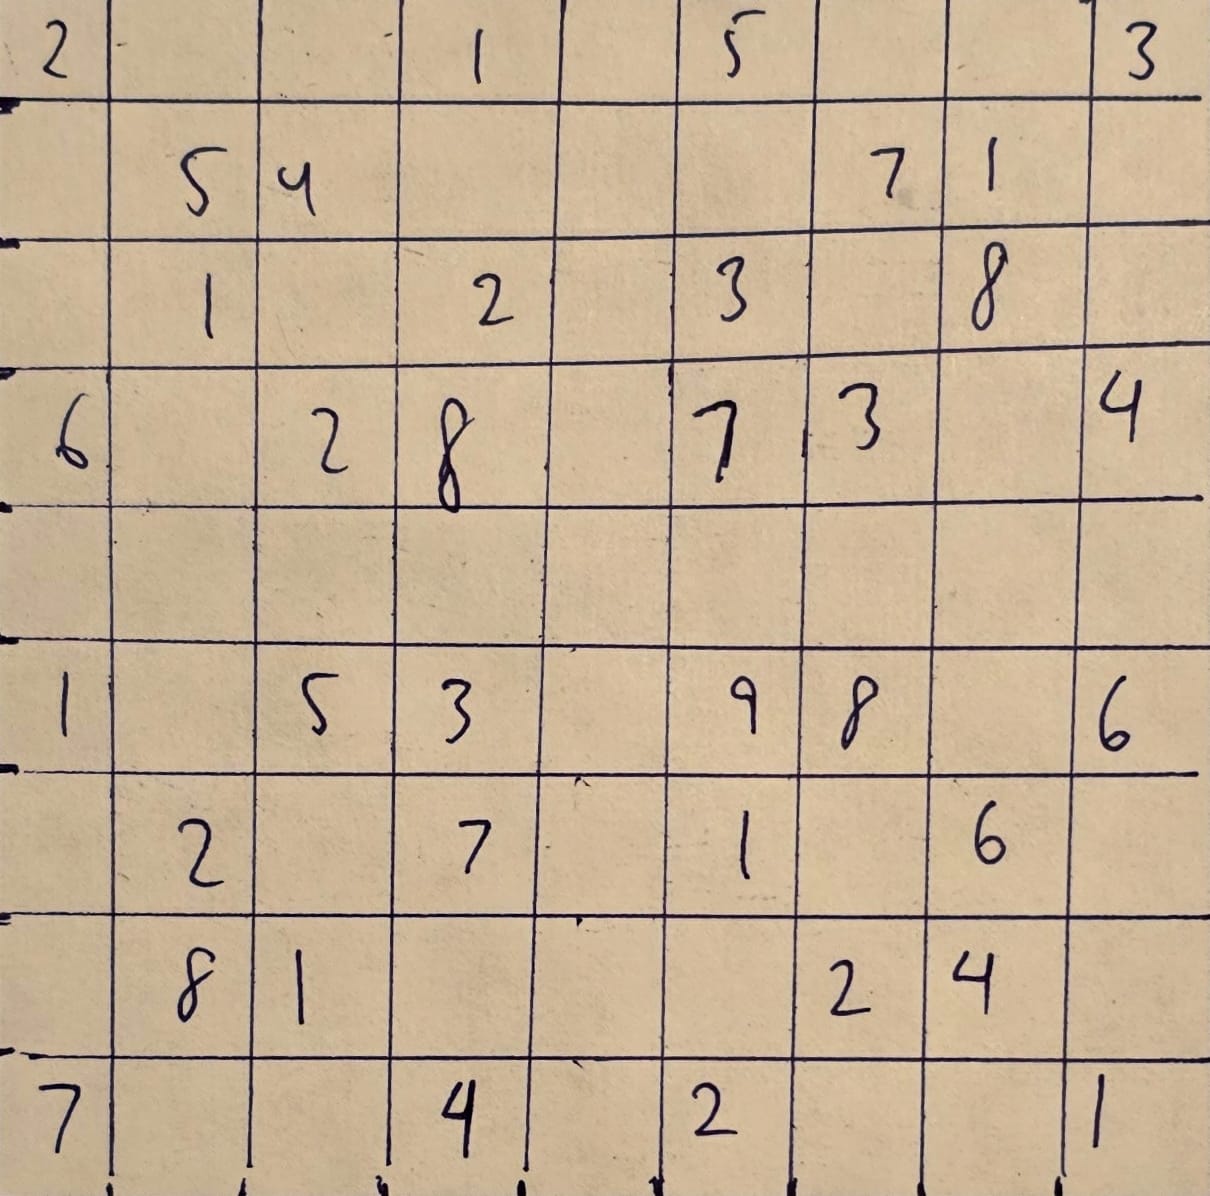 2 1 5 3
5 4 7 1
1 2 3 8
6 2 8 7 3 4
1 5 3 9 8 6
2 7 1 6
8 1 2 4
7 4 2 1